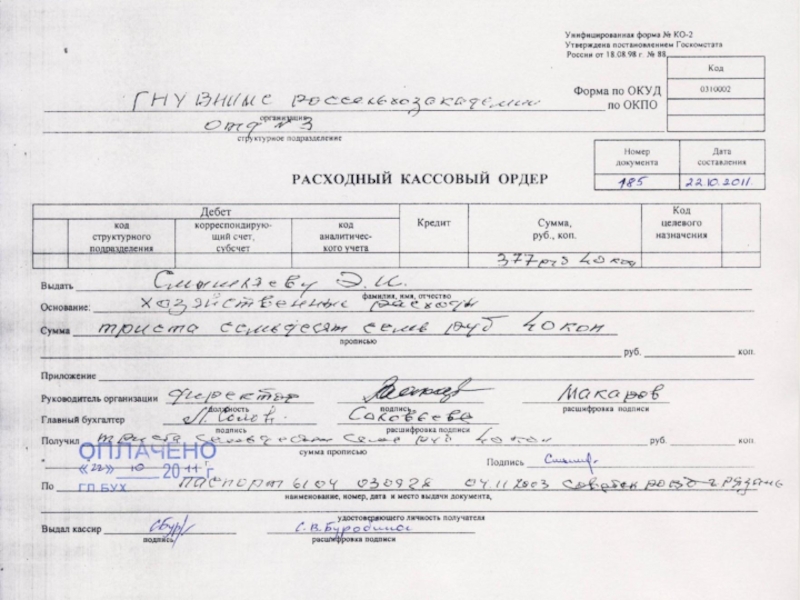 Унифицированная форма № КО-2
Утверждена постановлением Госкомстата
России от 18.08.98 г № 88
Код
Форма по ОКУД 0310002
ГНУ ВНИМС россельхозакадемии по ОКПО
организация
отд № 3
структурное подразделение
Номер документа Дата составления
РАСХОДНЫЙ КАССОВЫЙ ОРДЕР 185 22.10.2011
Дебет Кредит Сумма, руб., коп. Код целевого назначения
код структурного подразделения корреспондирую-щий счет, субсчет код аналитичес-кого учета
377 руб 40 коп
Выдать Э. И.
фамилия, имя, отчество
Основание: хозяйственные расходы
Сумма триста семьдесят семь руб 40 коп
прописью
руб. коп.
Приложение
Руководитель организации директор Макаров
должность подпись расшифровка подписи
Главный бухгалтер Соловьева
подпись расшифровка подписи
Получил триста семьдесят семь руб 40 коп руб. коп.
сумма прописью
ОПЛАЧЕНО
«22» 10 2011 г
ГЛ.БУХ
Подпись
По паспорт 6104 030928 04.11.2003 г Рязань
наименование, номер, дата и место выдачи документа,
удостоверяющего личность получателя
Выдал кассир С.В.Бурдина
подпись расшифровка подписи